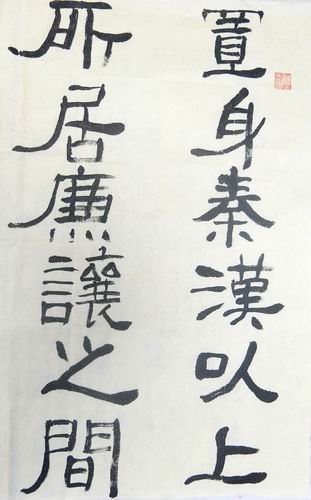 置身秦漢以上
所居廉讓之間